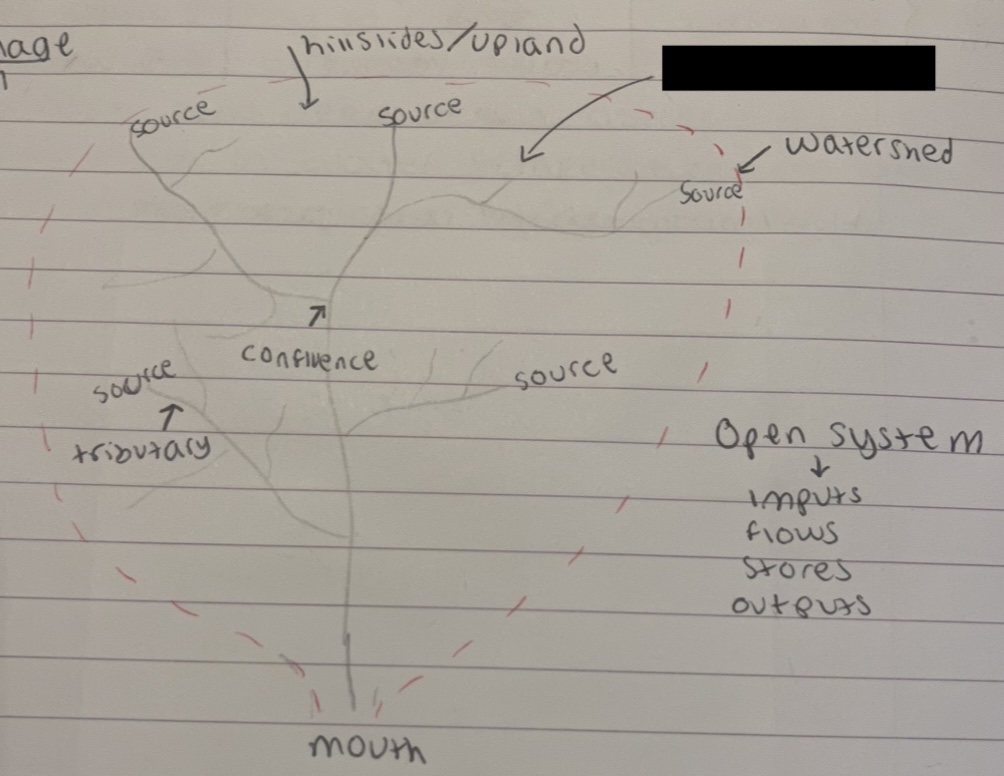 nage
hillslides/upland
source
source
watershed
source
confluence
source
source
tributary
Open system
inputs
flows
stores
outputs
mouth